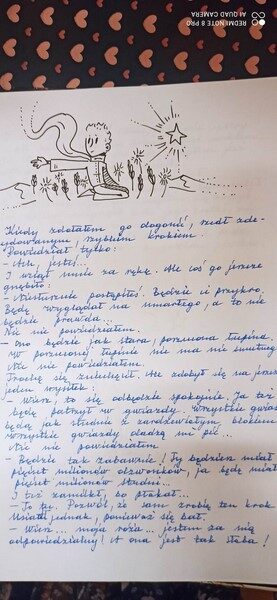 REDMI NOTE 8 PRO
AI QUAD CAMERA
Kiedy zdołałem go dogonić, szedł zde-
cydowanym, szybkim krokiem.
Powiedział tylko:
- Ach, jesteś...
I wziął mnie za rękę. Ale coś go jeszcze
gnębiło:
- Niesłusznie postąpiłeś. Będzie ci przykro.
Będę wyglądał na umarłego, a to nie
będzie prawdą...
Nic nie powiedziałem.
- ono będzie jak stara, porzucona łupina.
W porzuconej łupinie nie ma nic smutnego
Nic nie powiedziałem.
Trochę się zniechęcił. Ale zdobył się na jeszcze
jeden wysiłek:
- Wiesz, to się odbędzie spokojnie. Ja też
będę patrzył w gwiazdy. Wszystkie gwiazdy
będą jak studnie z zardzewiałym blokiem.
Wszystkie gwiazdy dadzą mi pić...
Nic nie powiedziałem.
- Będzie tak zabawnie! Ty będziesz miał
pięćset milionów dzwonków, ja będę miał
pięćset milionów studni...
I też zamilkł, bo płakał...
- To tu. Pozwól, że sam zrobię ten krok.
Usiadł jednak, ponieważ się bał.
- Wiesz... moja róża... jestem za nią
odpowiedzialny! A ona jest tak słaba!